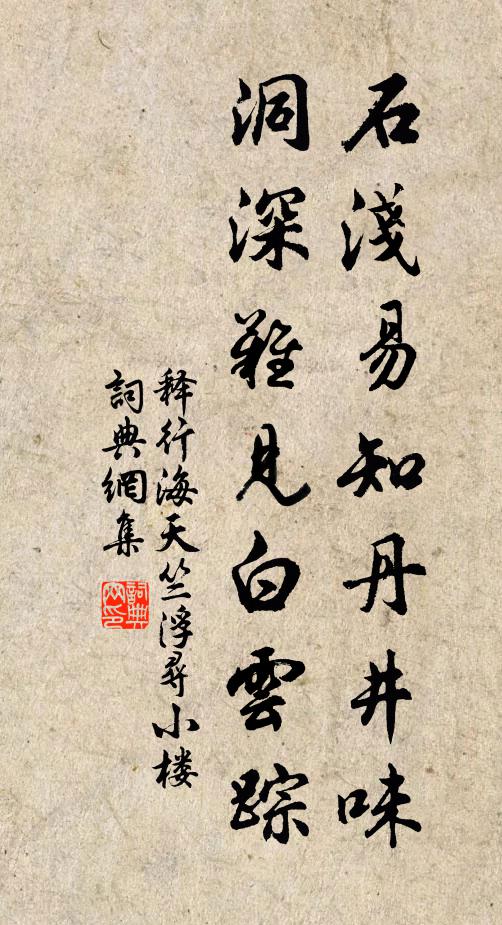 石淺易知丹井味
洞深難見白雲踪
释行海天竺浮尋小楼
詞典網集
詞典网印